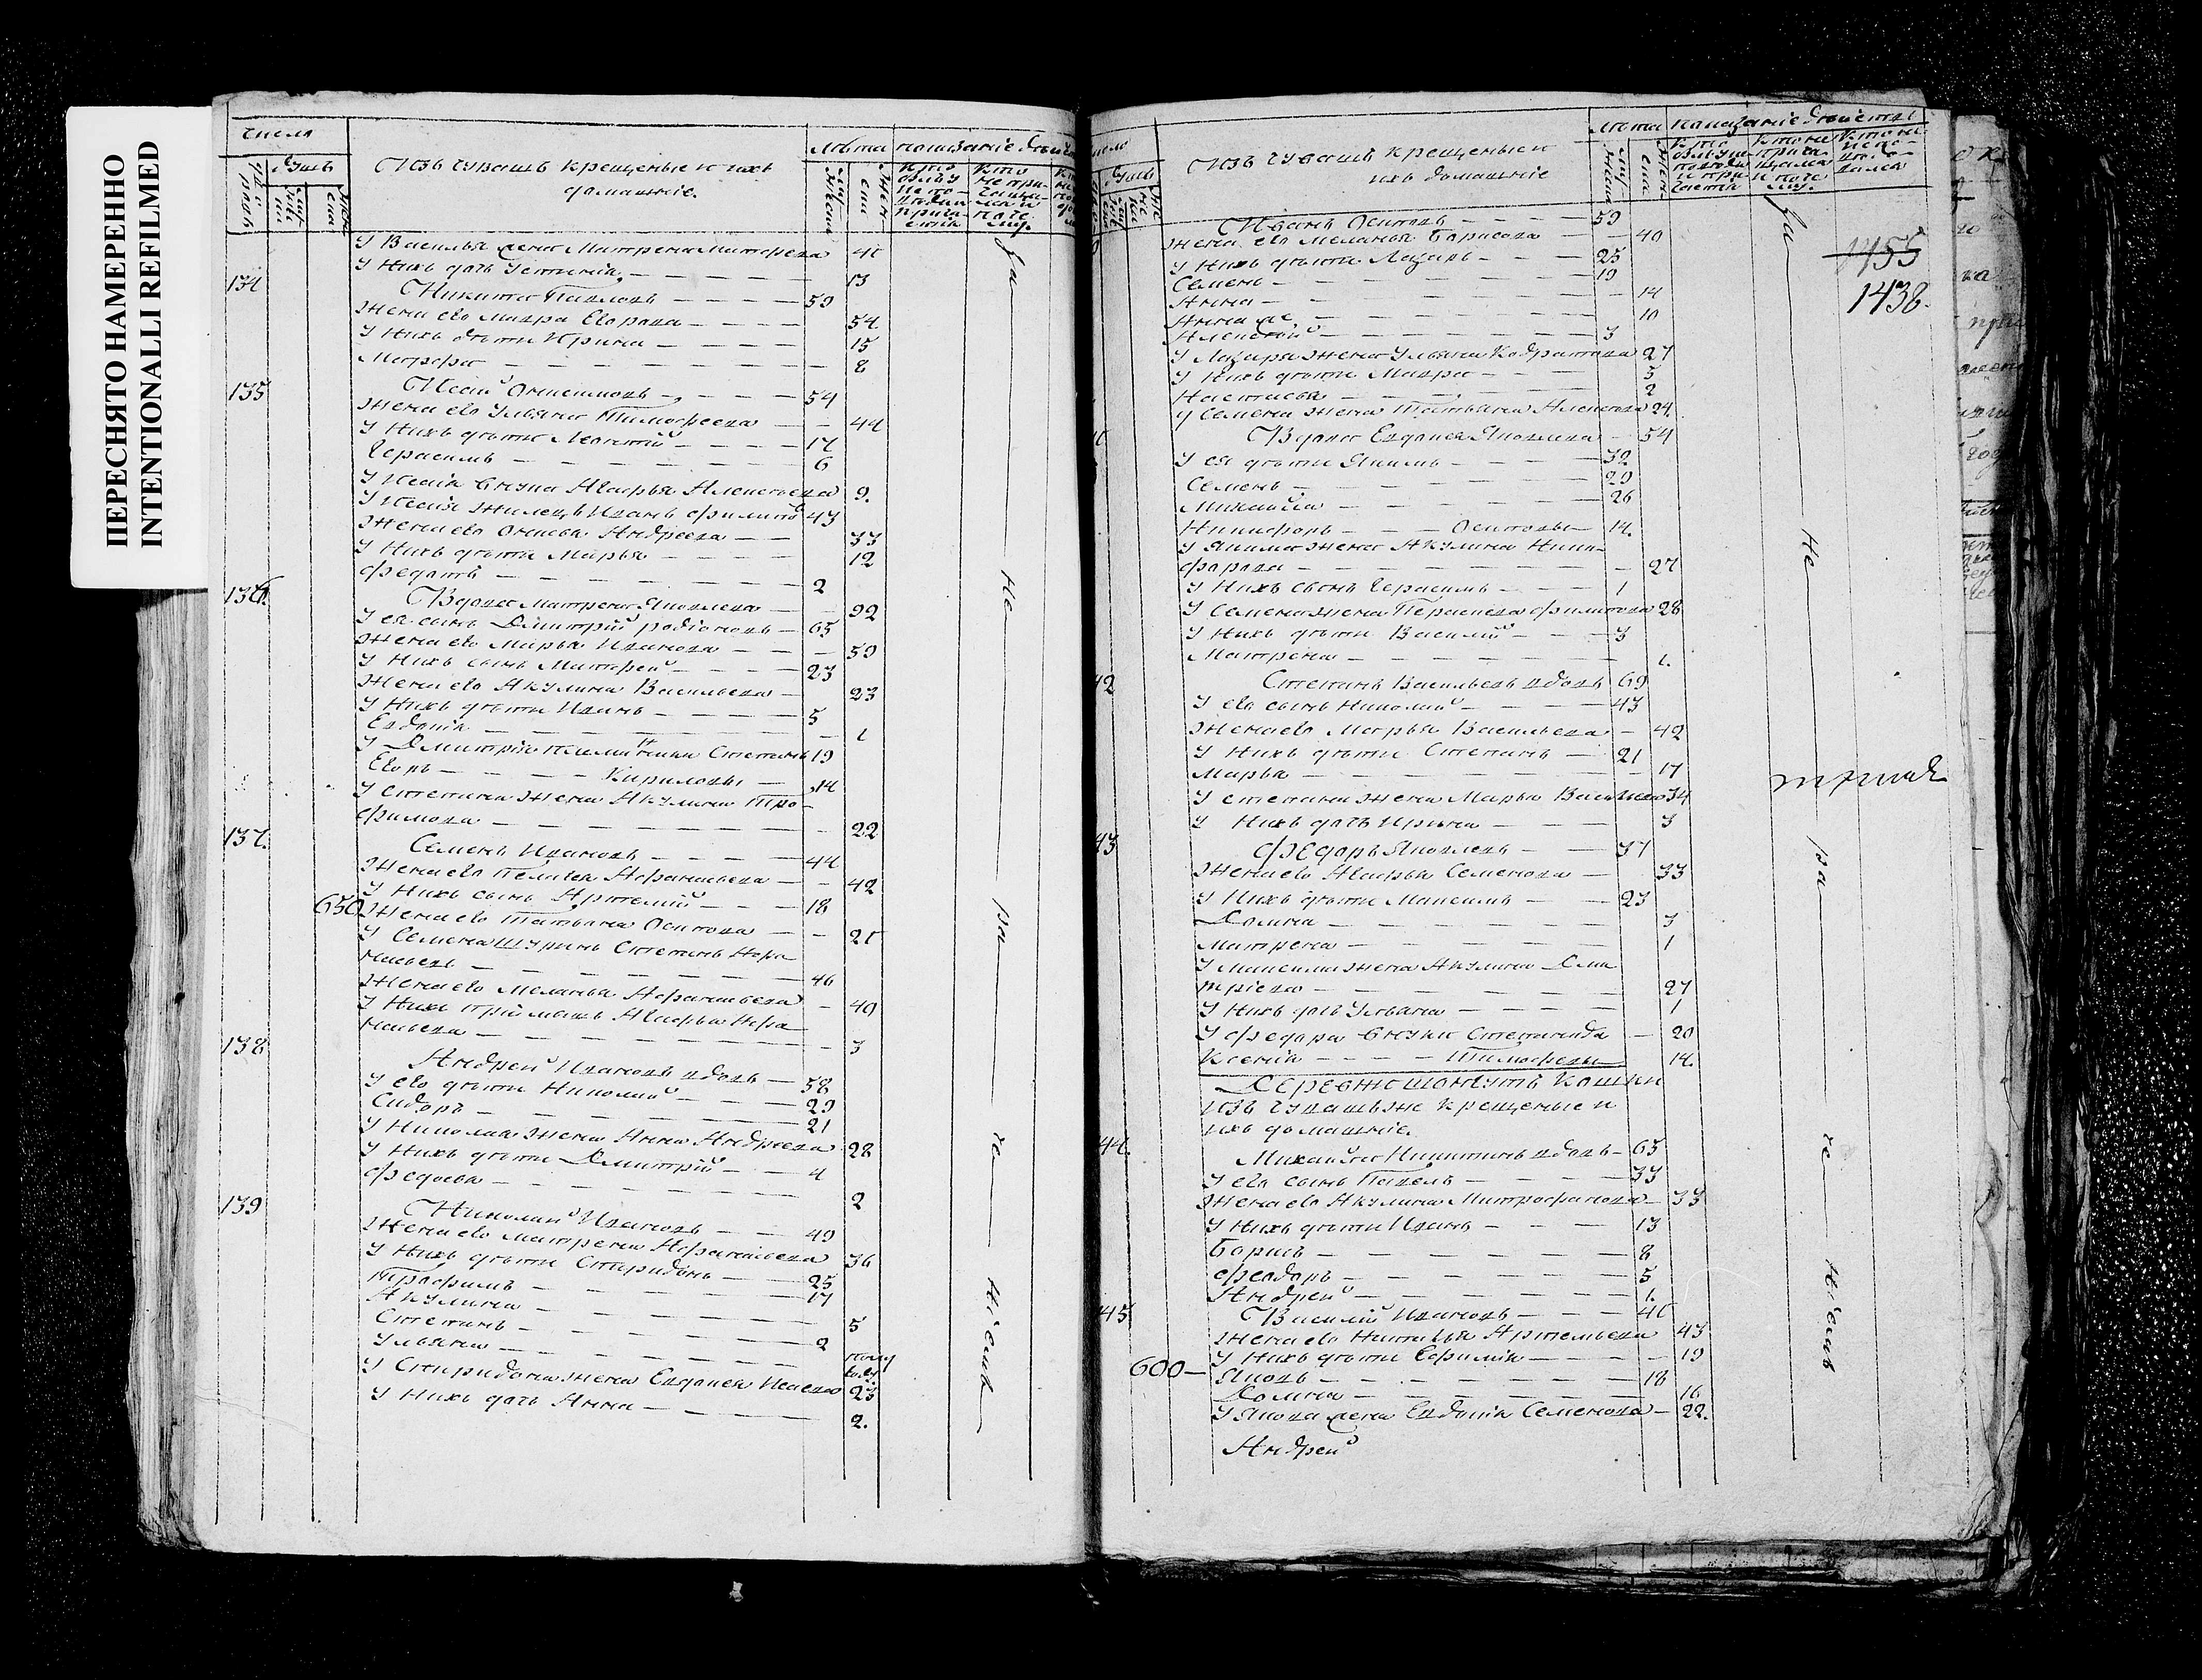 ПЕРЕСНЯТО НАМЕРЕННО
INTENTIONALLI REFILMED
число
душъ
Изъ чувашъ крещеные и ихъ
домашніе.
лѣта
показаніе
У Василья жена Матрена Матфеева 41
У нихъ дочь Устинія 13
134 Никита Павловъ 59
Жена его Мавра Егорова 54
У нихъ дѣти Ирина 15
Марфа 8
135 54
Жена его Ульяна Тимофеева 44
У нихъ дѣти Леонтій 17
Герасимъ 6
внука Марья Алексѣева 9.
Иванъ Филиповъ 43
Жена его Андреева 33
У нихъ дѣти Марья 12
Федотъ 2
136. Вдова Матрена Яковлева 92
У ея сынъ Димитрій Родіоновъ 65
Жена его Марья Иванова 59
У нихъ сынъ Матфей 23
Жена его Акулина Васильева 23
У нихъ дѣти Иванъ 5
Евдокія 1
У Димитрія племянники Степанъ 19
Егоръ Кириловы 14
У Степана жена Акулина Тро-
фимова 22
137. Семенъ Ивановъ 44
Жена его Пелагея Афанасьева 42
У нихъ сынъ Артемій 18
650 Жена его Татьяна Осипова 21
У Семена шуринъ Степанъ Афа
насьевъ 46
Жена его Меланья Афанасьева 40
У нихъ пріймышъ Марья Афа
насьева 3
138 Андрей Ивановъ вдовъ 58
У его дѣти Николай 29
Сидоръ 21
У Николая жена Анна Андреева 28
У нихъ дѣти Димитрій 4
Федосья 2
139 Николай Ивановъ 49
Жена его Матрена Афанасьева 36
У нихъ дѣти Спиридонъ 25
Трофимъ 17
Акулина 5
Степанъ 2
Ульяна полу
году
У Спиридона жена Евдокія Исаева 23
У нихъ дочь Анна 2.
За
не
ра
че
ніемъ
Изъ чувашъ крещеные и
ихъ домашніе
лѣта показаніе
Иванъ Осиповъ 59
Жена его Меланья Борисова 40
У нихъ дѣти Лазарь 25
Семенъ 19
Анна 14
Анна же 10
Алексѣй 3
У Лазаря жена Ульяна Кодратова 27
У нихъ дѣти Мавра 5
Настасья 2
У Семена жена Татьяна Алексѣева 24.
Вдова Евдокія Яковлева 54
У ея дѣти Якимъ 32
Семенъ 29
Михайла 26
Никифоръ Осиповы 14.
У Якима жена Акулина Ники-
форова 27
У нихъ сынъ Герасимъ 1
У Семена жена Парасковья Филипова 28
У нихъ дѣти Василій 3
Матрена 1.
42 Степанъ Васильевъ вдовъ 69
У его сынъ Николай 43
Жена его Марья Васильева 42
У нихъ дѣти Степанъ 21
Марья 17
У Степана жена Марья Васильева 34
У нихъ дочь Ирина 3
43 Федоръ Яковлевъ 37
Жена его Марья Семенова 33
У нихъ дѣти Максимъ 23
Домна 3
Матрена 1
У Максима жена Акулина Дми
тріева 27
У нихъ дочь Ульяна 1
У Федора внуки Степанида 20
Ксенія Тимофеевы 14.
Деревни Кошки
изъ чувашъ же крещеные и
ихъ домашніе.
44. Михайла Никитинъ вдовъ 65
У его сынъ Павелъ 33
Жена его Акулина Митрофанова 33
У нихъ дѣти Иванъ 13
Борисъ 8
Феодоръ 5
Андрей 1.
45 Василій Ивановъ 41
Жена его Наталья Артемьева 43
У нихъ дѣти Ефимія 19
600 Яковъ 18
Домна 16
У Якова жена Евдокія Семенова 22.
Андрей
За
не
ра
че
ніемъ
1455
1438.